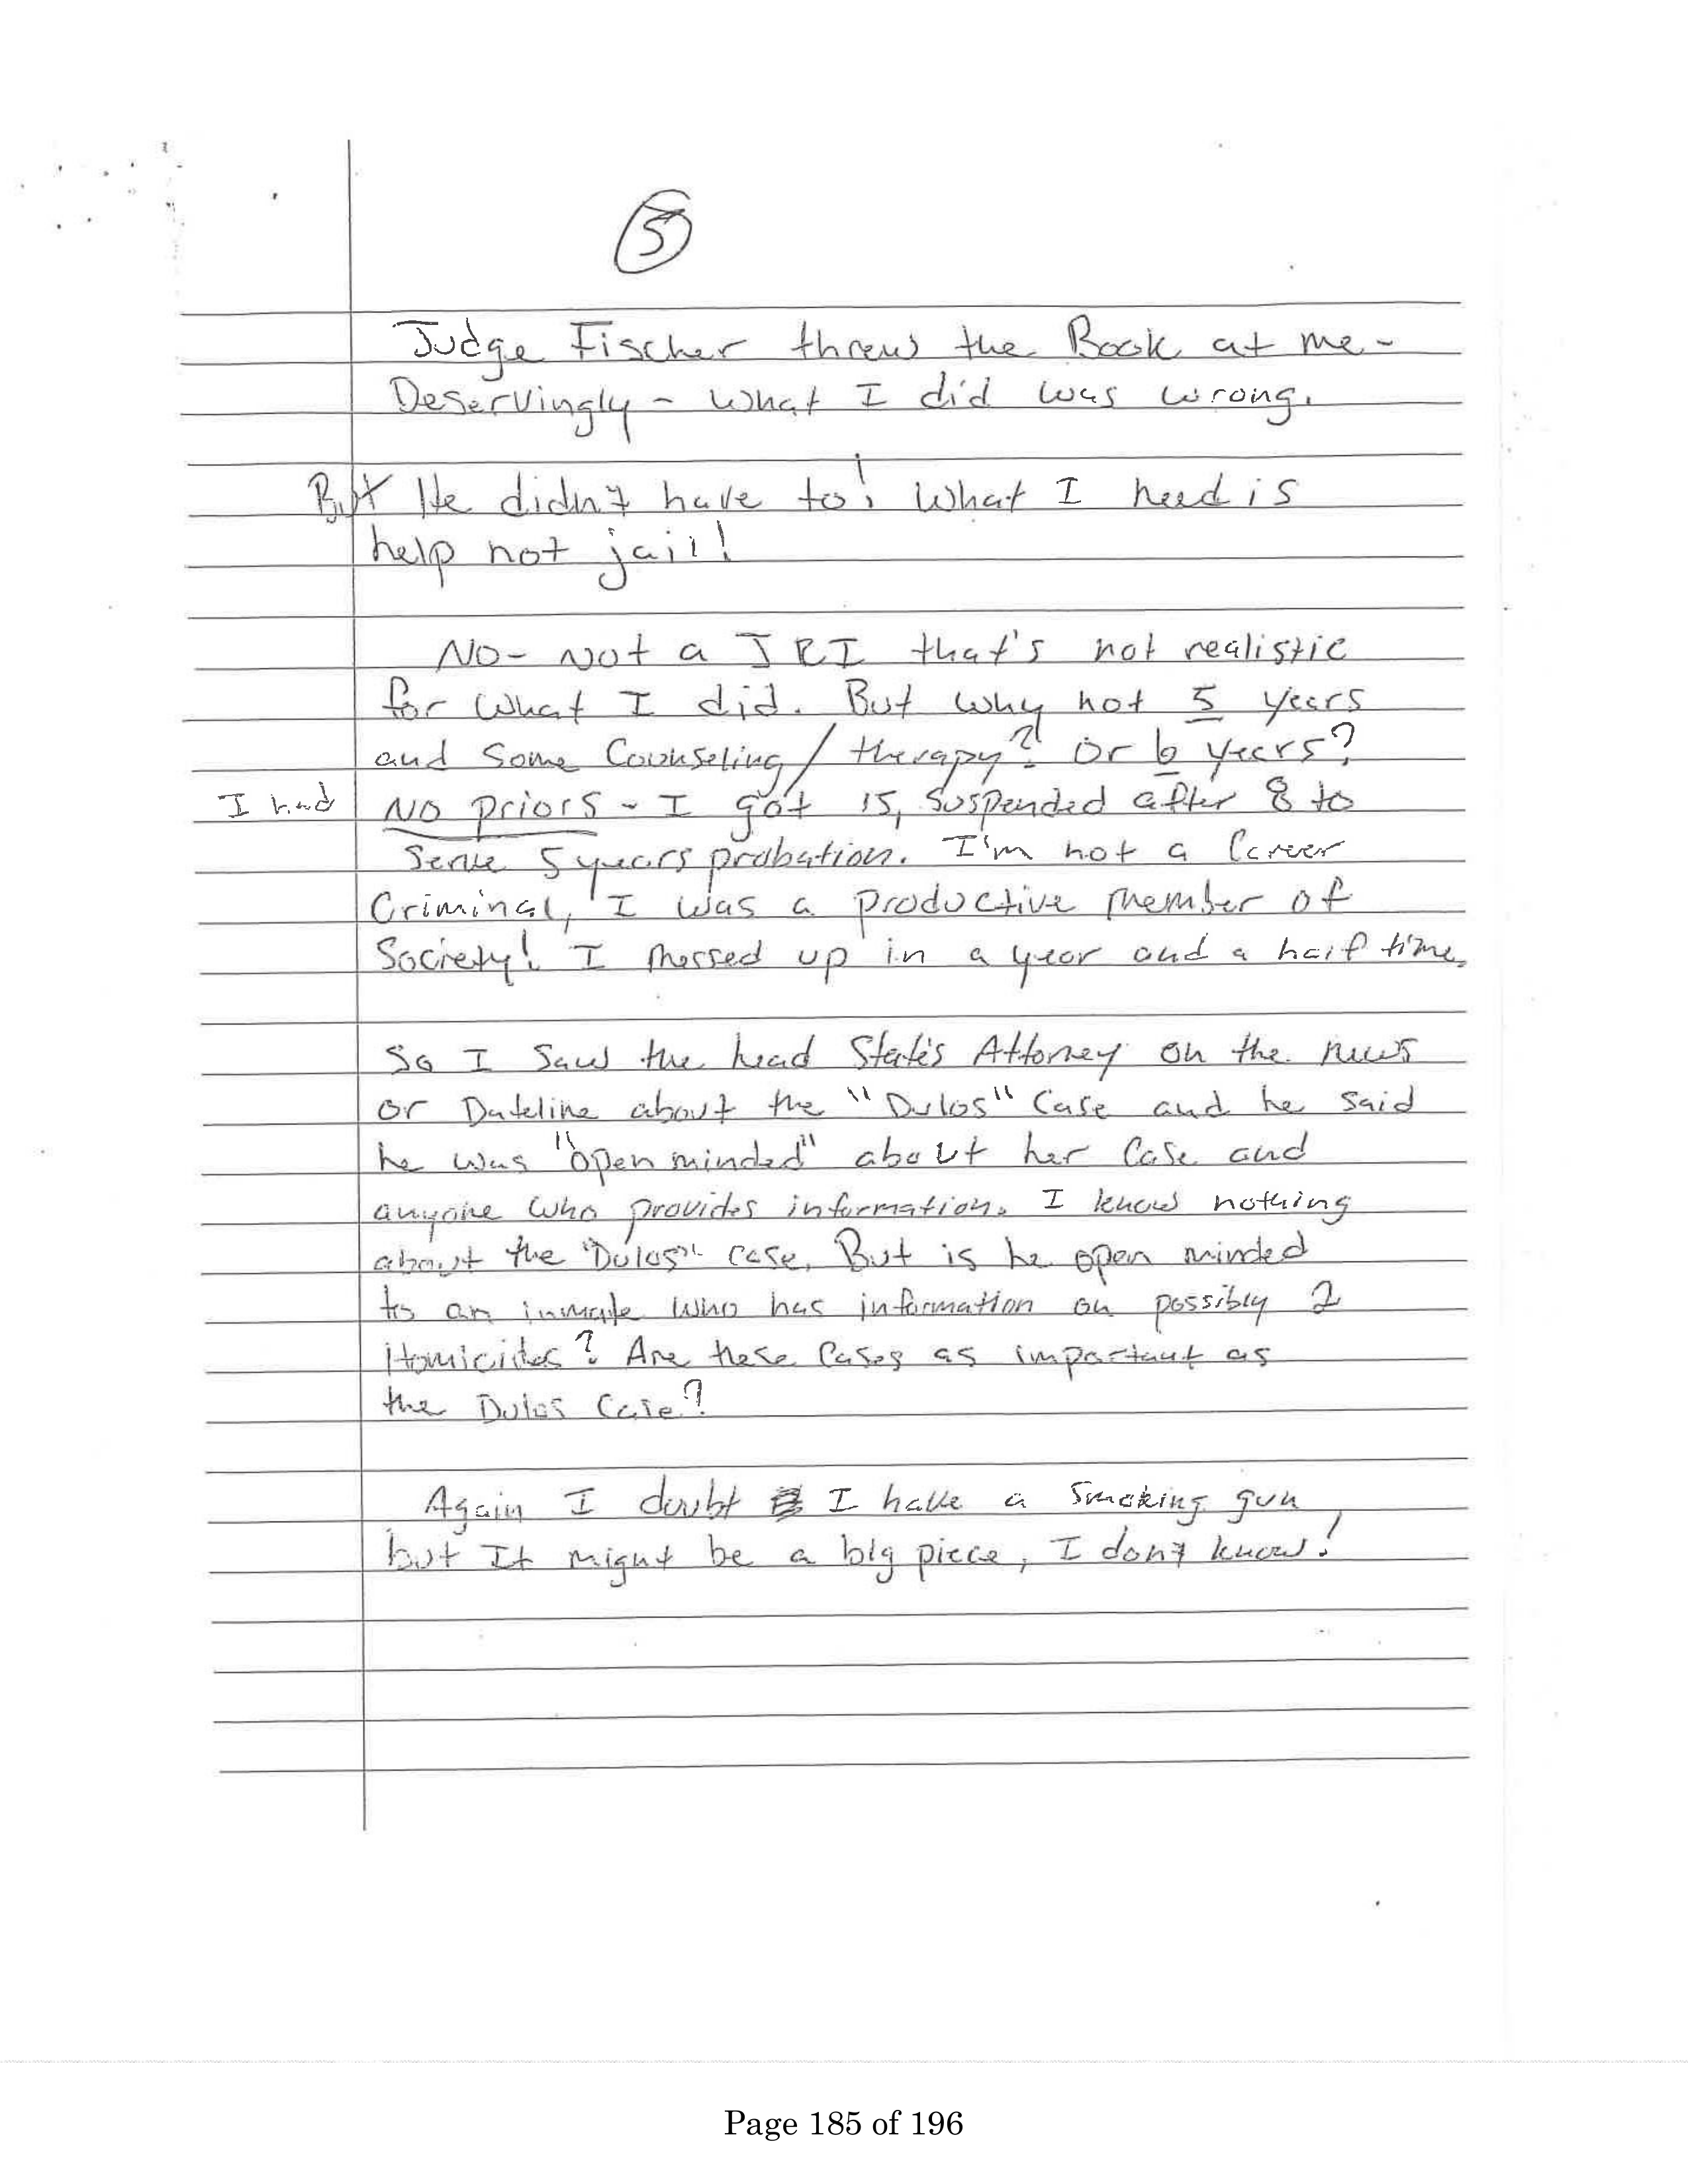 5
Judge Fischer threw the Book at me-
Deservingly - What I did was wrong.
But He didn't have to! What I need is
help not jail!
No- Not a JRI that's not realistic
for what I did. But why not 5 years
and Some Counseling/therapy? Or 6 years?
I had NO priors - I got 15, Suspended after 8 to
Serve 5 years probation. I'm not a Career
Criminal, I was a productive member of
Society! I messed up in a year and a half time.
So I Saw the head State's Attorney on the news
or Dateline about the "Dulos" Case and he said
he was "open minded" about her Case and
anyone who provides information. I know nothing
about the "Dulos" case. But is he open minded
to an inmate who has information on possibly 2
Homicides? Are these Cases as important as
the Dulos Case?
Again I doubt I have a smoking gun
but It might be a big piece, I don't know!
Page 185 of 196